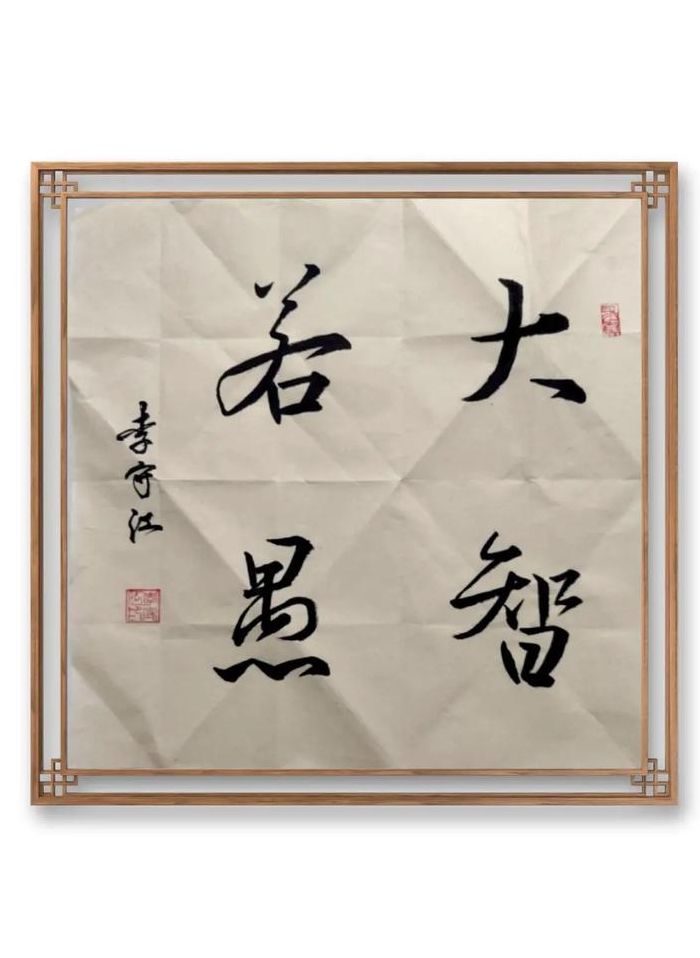 大智
若愚
李守江